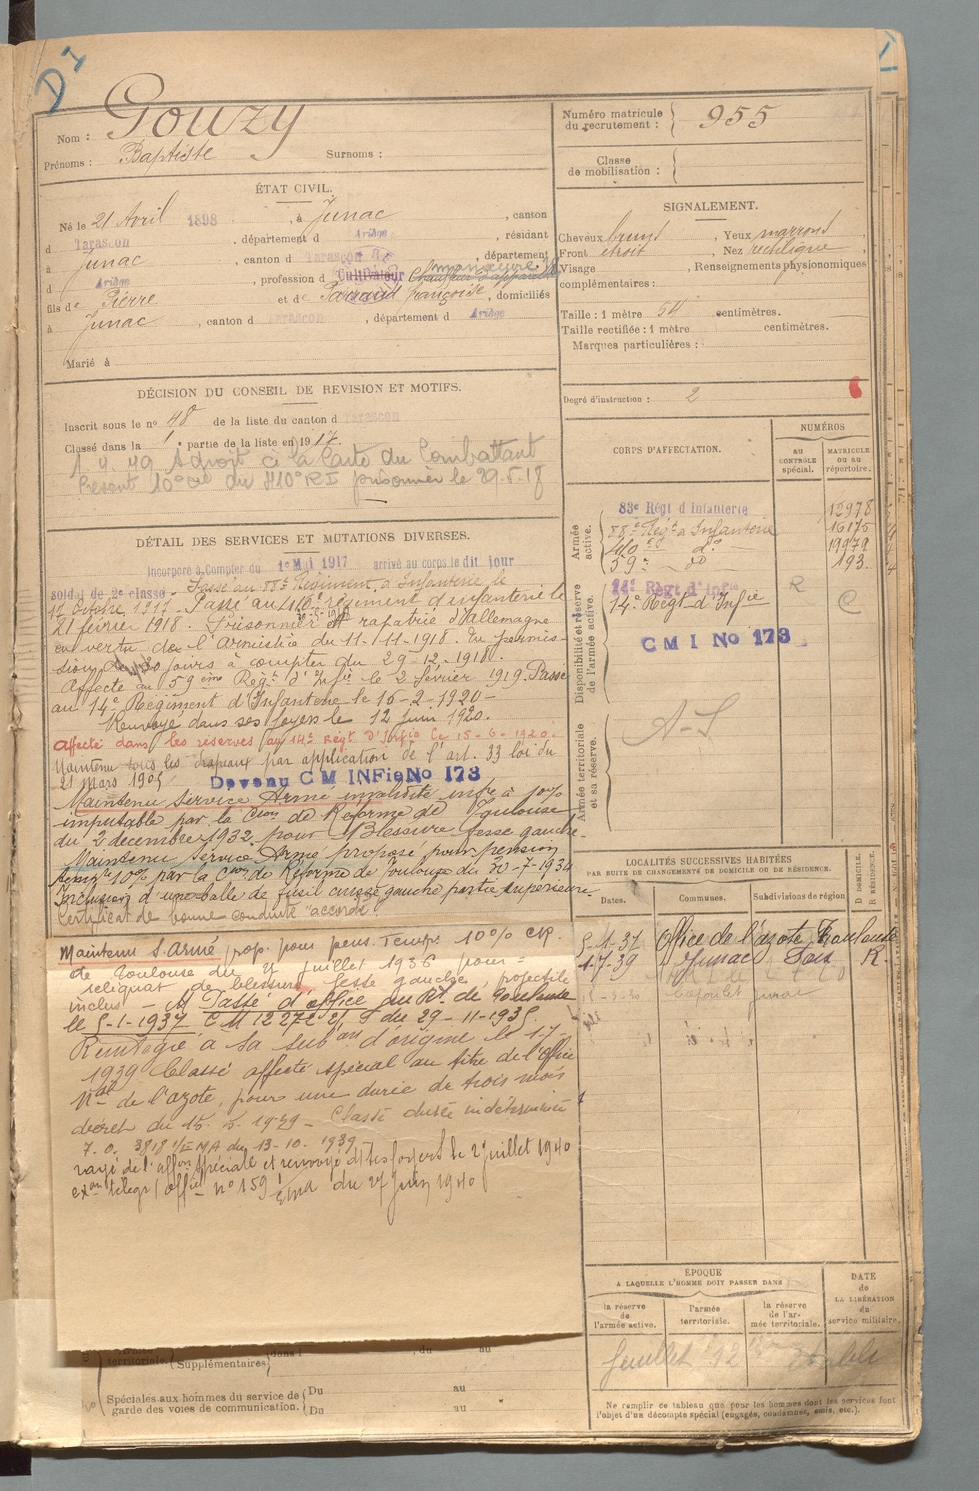 D I
Nom : Gouzy
Prénoms : Baptiste Surnoms :
Numéro matricule du recrutement : 955
Classe de mobilisation :
ÉTAT CIVIL.
Né le 21 Avril 1898, à Junac, canton
d Tarascon, département d Ariège, résidant
à Junac, canton d Tarascon, département
d Ariège, profession d Cultivateur manœuvre
fils de Pierre et de Parraud Françoise, domiciliés
à Junac, canton d Tarascon, département d Ariège
Marié à
SIGNALEMENT.
Cheveux bruns, Yeux marrons
Front étroit, Nez rectiligne
Visage, Renseignements physionomiques
complémentaires :
Taille : 1 mètre 54 centimètres.
Taille rectifiée : 1 mètre centimètres.
Marques particulières :
Degré d'instruction : 2
DÉCISION DU CONSEIL DE REVISION ET MOTIFS.
Inscrit sous le n° 48 de la liste du canton d Tarascon
Classé dans la 1e partie de la liste en 1917.
A droit à la Carte du Combattant
Présent 10e Cie du 410e RI prisonnier le 29.5.18
DÉTAIL DES SERVICES ET MUTATIONS DIVERSES.
Incorporé à Compter du 1er Mai 1917 arrivé au corps le dit jour
soldat de 2e classe. Passé au 88e Régiment d'Infanterie le
12 Octobre 1917. Passé au 410e régiment d'infanterie le
21 février 1918. Prisonnier rapatrié d'Allemagne
en vertu de l'armistice du 11-11-1918. En permis-
sion de 30 jours à compter du 29-12-1918.
Affecté au 59ème Régt d'Infie le 2 février 1919. Passé
au 14e Régiment d'Infanterie le 16-2-1920-
Renvoyé dans ses foyers le 12 Juin 1920.
Affecté dans les réserves au 14e Régt d'Infie Le 15-6-1920.
Maintenu sous les drapeaux par application de l'art. 33 loi du
21 Mars 1905
Devenu C M INFie No 173
Maintenu Service Armé invalidité infre à 10%
imputable par la Cion de Réforme de Toulouse
du 2 décembre 1932 pour Blessure fesse gauche-
Maintenu Service Armé proposé pour pension
temp. 10% par la Cion de Réforme de Toulouse du 30-7-1934
Inclusion d'une balle de fusil cuisse gauche partie supérieure
Certificat de bonne conduite "accordé"
Maintenu S. Armé, prop. pour pens. Temp. 10% CR.
de Toulouse du 21 juillet 1936 pour:
reliquat de blessure fesse gauche, projectile
inclus - Passé d'office au Rt. de Toulouse
le 5-1-1937 CM 12272 du 29-11-1935
Réintégré à sa subon d'origine le 1-7-
1939 Classé affecté spécial au titre de l'Office
Nal de l'azote, pour une durée de trois mois
décret du 15-5-1939- Classé durée indéterminée
7.0. 3818 1/EMA du 13-10-1939
rayé de l'affon spéciale et renvoyé ds ses foyers le 2 juillet 1940
exon télégr. offiel n° 159 EMA du 27 Juin 1940
CORPS D'AFFECTATION.
NUMÉROS
au CONTRÔLE spécial.
MATRICULE ou au répertoire.
Armée active.
83e Régt d'Infanterie 12978
88e Régt d'Infanterie 16175
410e do 19979
59e do 193
Disponibilité et réserve de l'armée active.
14e Régt d'Infie
R C
C M I No 173
Armée territoriale et sa réserve.
A-S
LOCALITÉS SUCCESSIVES HABITÉES
PAR SUITE DE CHANGEMENTS DE DOMICILE OU DE RÉSIDENCE.
Dates. Communes. Subdivisions de région D. DOMICILE. R. RÉSIDENCE.
5-1-37 Office de l'azote Toulouse
1-7-39 Junac Foix R.
Capoulet Junac
ÉPOQUE
A LAQUELLE L'HOMME DOIT PASSER DANS
la réserve de l'armée active.
l'armée territoriale.
la réserve de l'armée territoriale.
DATE de LA LIBÉRATION du service militaire.
territoriale. (Supplémentaires) dans l , du au
Spéciales aux hommes du service de garde des voies de communication. Du au
Du au
Ne remplir ce tableau que pour les hommes dont les services font
l'objet d'un décompte spécial (engagés, condamnés, omis, etc.).